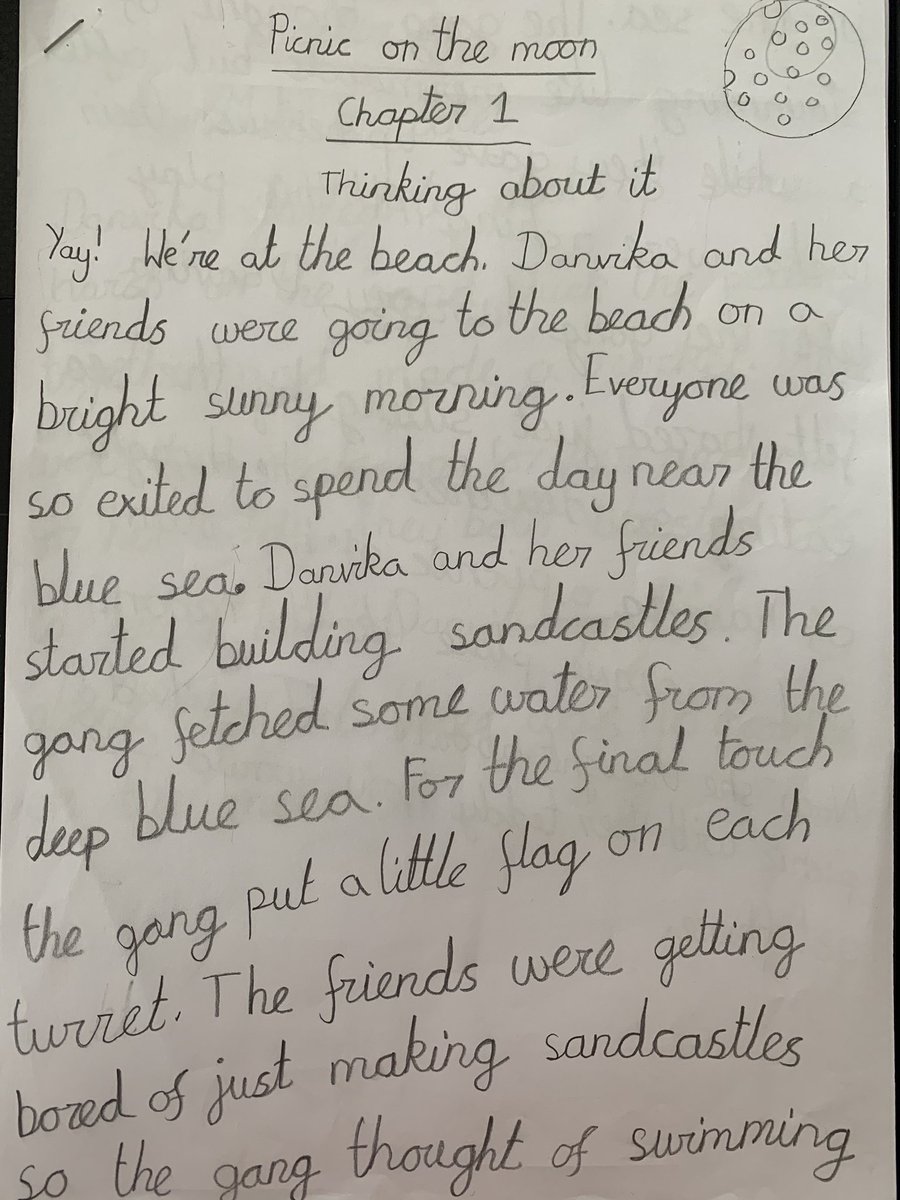 Picnic on the moon
Chapter 1
Thinking about it
Yay! We're at the beach. Danvika and her
friends were going to the beach on a
bright sunny morning. Everyone was
so exited to spend the day near the
blue sea. Danvika and her friends
started building sandcastles. The
gang fetched some water from the
deep blue sea. For the final touch
the gang put a little flag on each
turret. The friends were getting
bored of just making sandcastles
so the gang thought of swimming